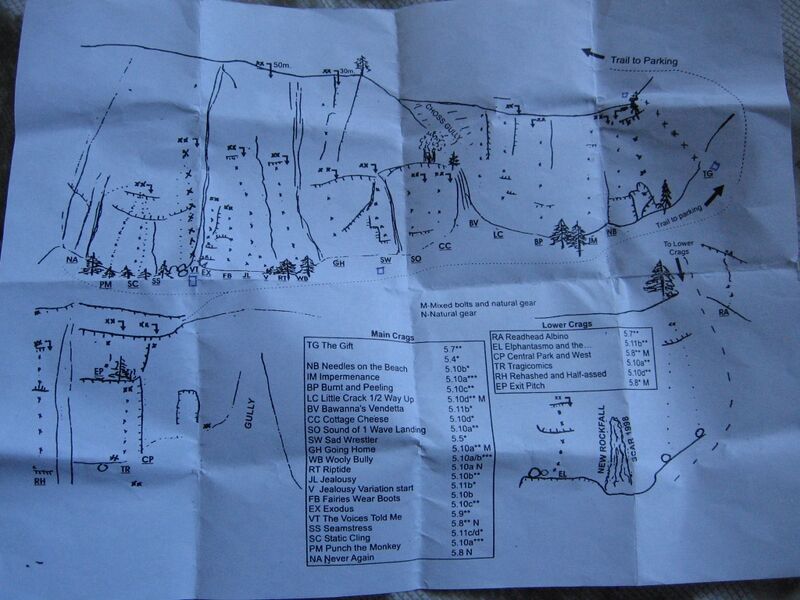 Trail to Parking
50m.
30m.
CHOSS GULLY
TG
Trail to parking
NA
PM
SC
SS
VT
EX
FB
JL
V
RT
WB
GH
SW
SO
CC
BV
LC
BP
IM
NB
To Lower
Crags
RA
M-Mixed bolts and natural gear
N-Natural gear
Main Crags
TG The Gift 5.7**
5.4*
NB Needles on the Beach 5.10b*
IM Impermenance 5.10a***
BP Burnt and Peeling 5.10c**
LC Little Crack 1/2 Way Up 5.10d** M
BV Bawanna's Vendetta 5.11b*
CC Cottage Cheese 5.10d*
SO Sound of 1 Wave Landing 5.10a**
SW Sad Wrestler 5.5*
GH Going Home 5.10a** M
WB Wooly Bully 5.10a/b***
RT Riptide 5.10a N
JL Jealousy 5.10b**
V Jealousy Variation start 5.11b*
FB Fairies Wear Boots 5.10b
EX Exodus 5.10c**
VT The Voices Told Me 5.9**
SS Seamstress 5.8** N
SC Static Cling 5.11c/d*
PM Punch the Monkey 5.10a***
NA Never Again 5.8 N
Lower Crags
RA Readhead Albino 5.7**
EL Elphantasmo and the... 5.11b**
CP Central Park and West 5.8** M
TR Tragicomics 5.10a**
RH Rehashed and Half-assed 5.10d**
EP Exit Pitch 5.8* M
EP
CP
TR
RH
GULLY
EL
NEW ROCKFALL
SCAR 1998